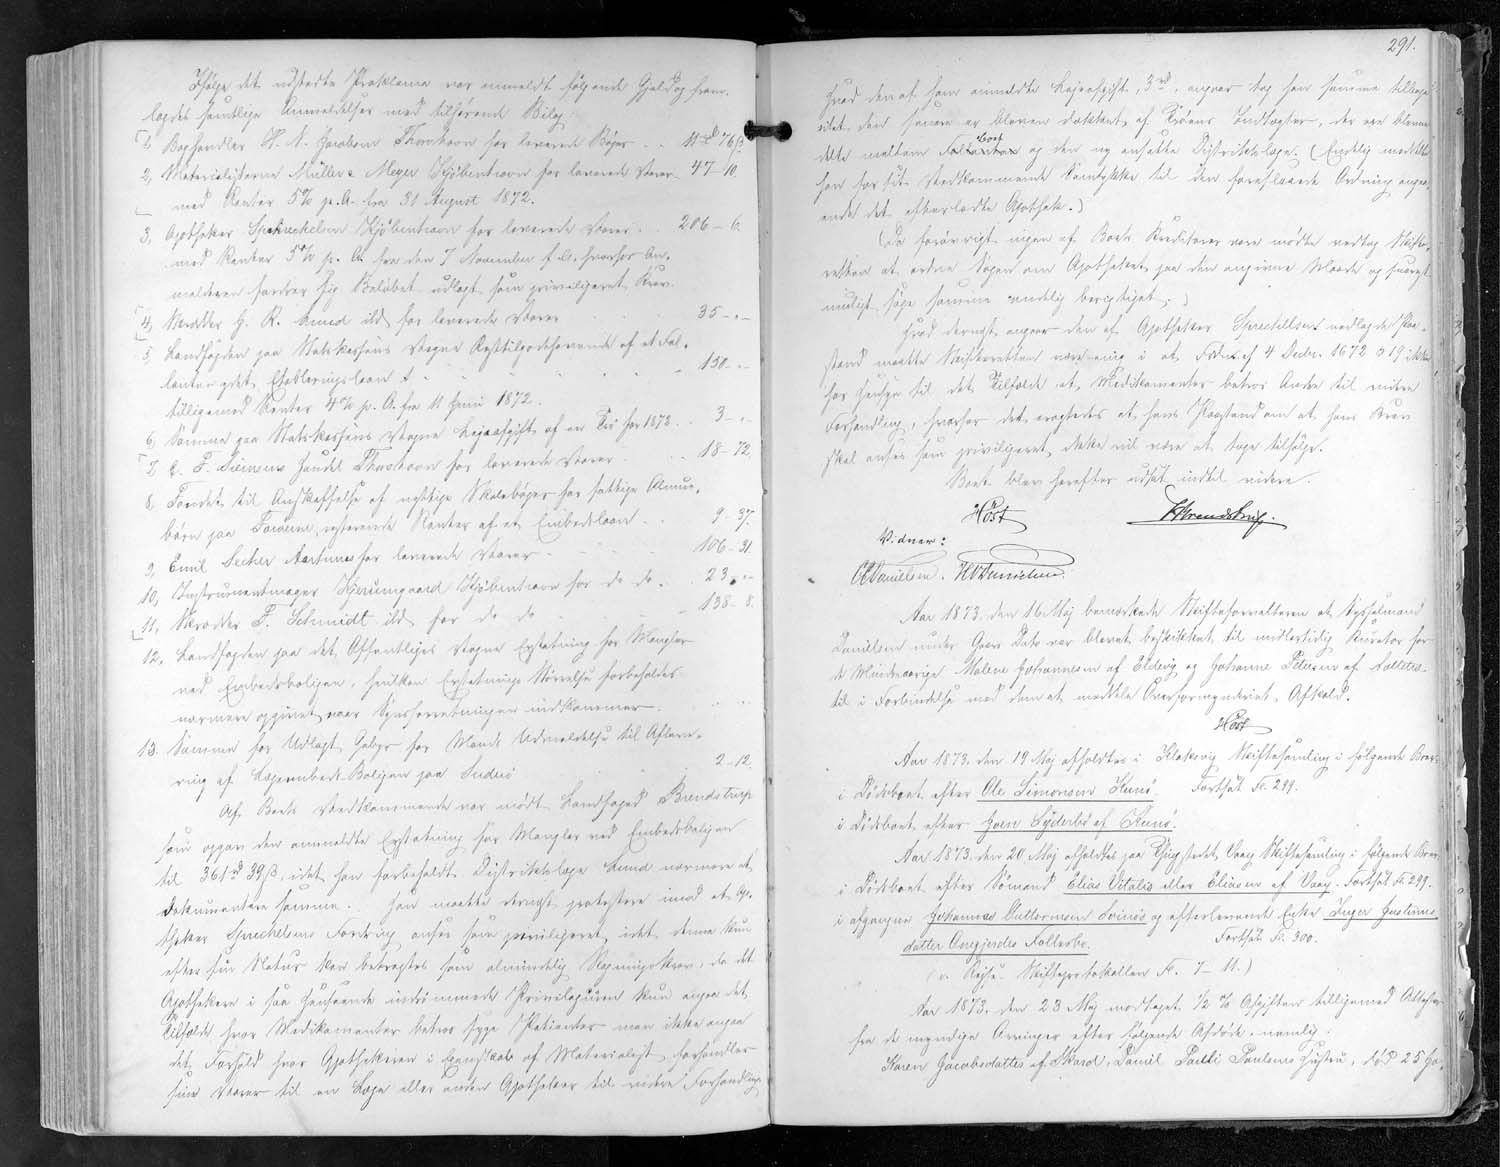 Ifølge det udstedte Proklama var anmeldt følgende Gjæld og frem-
lagdes samtlige Anmeldelser med tilhørende Bilag:
1, Boghandler H. N. Jacobsen Thorshavn for leverede Bøger . . 11 rd 76 ß
2, Materialisterne Müller & Meyer Kjöbenhavn for leverede Varer - 47 - 10.
med Renter 5% p. A. fra 31 August 1872.
3, Apotheker Spreckelsen Kjöbenhavn for leverede Varer . . 206 - 6.
med Renter 5% p. A. fra den 7 November f. A. hvorhos An-
melderen fordrer sig Beløbet udlagt som privilegeret Krav.
4, Skrædder H. R. Lund ibd for leverede Varer 35 - " -
5, Landfogden paa Statskassens Vegne Resttilgodehavende af et Fal-
lenten ydet Etableringslaan . . 130 - " -
tilligemed Renter 4% p. A. fra 11 Juni 1872.
6, Samme paa Statskassens Vegne Lejeafgift af en for 1872 . . 3 - " -
7, C. F. Siemsens Handel Thorshavn for leverede Varer . . 18 - 72.
8, Fondet til Anskaffelse af nyttige Skolebøger for fattige Almue-
børn paa Færøerne, resterende Renter af et Embedslaan . . 9 - 37.
9, Emil Secher Aarhuus for leverede Varer . . 106 - 31.
10, Instrumentmager Hjerumgaard Kjöbenhavn for do do . . 23 - " -
11, Skrædder P. Schmidt ibd for do do 138 - 8.
12, Landfogden paa det Offentliges Vegne Erstatning for Mangler
ved Embedsboligen, hvilken Erstatnings Størrelse forbeholdes
nærmere opgivet naar Synsforretningen indkommer.
13. Samme for Udlagt Gebyr for Mænds Udmeldelse til Afleve-
ring af Lægeembeds-Boligen paa Suderø 2 - 12.
Af Boets Vedkommende var mødt Landfoged Brendstrup
som opgav den anmeldte Erstatning for Mangler ved Embedsboligen
til 361 rd 39 ß, idet han forbeholdt Distriktslæge Lund nærmere at
dokumentere samme. Han maatte dernæst protestere imod at Apo-
theker Sprechelsens Fordring anses som privilegeret, idet denne kun
efter sin Natur kan betragtes som almindelig Regningskrav, da det
Apothekere i saa Henseende indrømmede Privilegium kun angaar det
Tilfælde hvor Medikamenter betros syge Patienter men ikke angaar
det Forhold hvor Apothekeren i Egenskab af Materialist forhandler
sine Varer til en Læge eller anden Apotheker til videre Forhandling.
291.
Hvad den af ham anmeldte Lejeafgift, 3 rd, angaar tog han samme tilbage
idet den senere er bleven dækket af Boets Indtægter, der ere blevne
delte mellem Boet og den ny ansatte Distriktslæge. (Endelig meddelte
han for sit Vedkommende Samtykke til den foreslaaede Ordning angaa-
ende det efterladte Apothek.)
(Da forøvrigt ingen af Boets Kreditorer vare mødte vedtog Skifte-
retten at ordne Sagen om Apotheket paa den angivne Maade og snarest
muligt søge samme endelig berigtiget.)
Hvad dernæst angaar den af Apotheker Sprechelsen nedlagte Paa-
stand maatte Skifteretten være enig i at Frdn. af 4 Decbr. 1672 § 19 ikke
har Hensyn til det Tilfælde at Medikamenter betros Andre til videre
Forhandling, hvorfor det eragtedes at hans Paastand om at hans Krav
skal anses som privilegeret ikke vil være at tage tilfølge.
Boet blev herefter udsat indtil videre.
Høst HBrendstrup.
Vidner:
CDanielsen. HODanielsen.
Aar 1873, den 16 Maj bemærkede Skifteforvalteren at Sysselmand
Danielsen under Gaars Dato var blevet beskikket til midlertidig Kurator for
de Mindreaarige Malene Johannesen af Eldevig og Johanne Petersen af Solletes-
til i Forbindelse med dem at meddele Overformynderiet Afkald.
Høst
Aar 1873. den 19 Maj afholdtes i Klaksvig Skiftesamling i følgende Boer:
i Dødsboet efter Ole Simonsen Kunø. Fortsat Fo. 299.
i Dødsboet efter Joen Lÿderbö af Kunø.
Aar 1873. den 20 Maj afholdtes paa Thingstedet Vaag Skiftesamling i følgende Boer:
i Dødsboet efter Sømand Elias Vitalis eller Eliasen af Vaag. Fortsat Fo. 299.
i afgangne Johannes Guttormsen Svinø og efterlevende Enke Inger Justines
datter Ovegjerdes Fællesbo. Fortsat Fo. 300.
(v. Rejse-Skifteprotokollen Fo. 7 - 11.)
Aar 1873. den 23 Maj modtaget 1/2 % Afgiften tilligemed Attester
fra de myndige Arvinger efter følgende Afdøde, nemlig:
Karen Jacobsdatter af Skard, Daniel Pauli Poulsens Hustru, død 25 Ja-